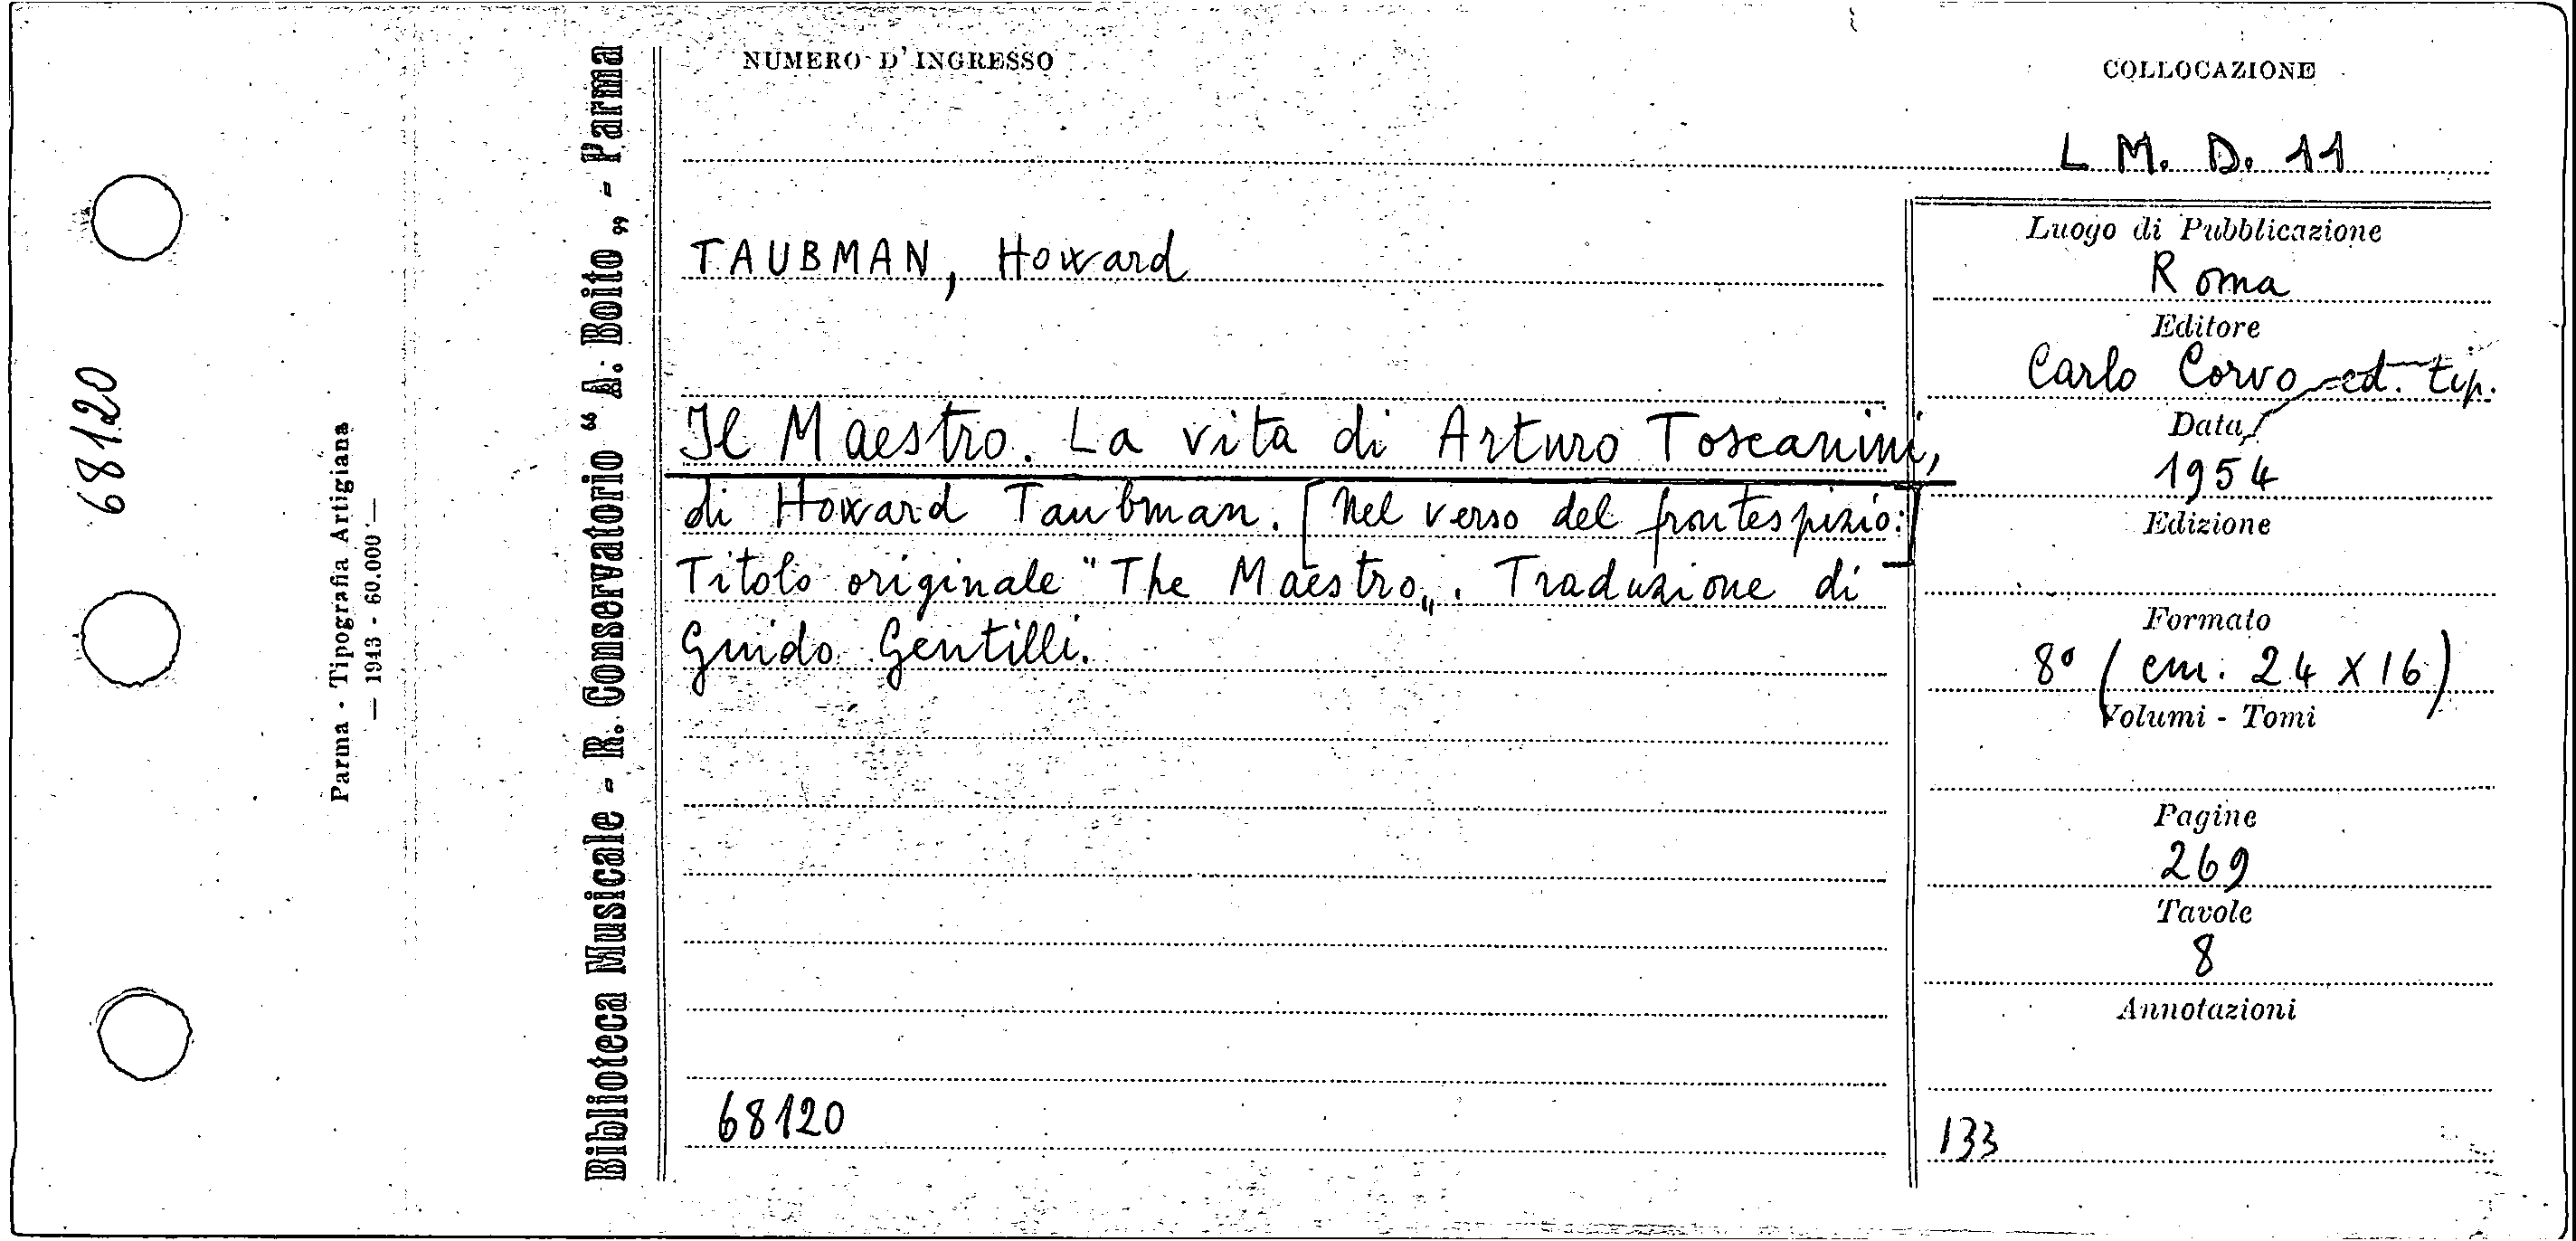 68120
Parma - Tipografia Artigiana
— 1943 - 60.000 —
Biblioteca Musicale - R. Conservatorio “ A. Boito „ - Parma
NUMERO D'INGRESSO
COLLOCAZIONE
L. M. D. 11
TAUBMAN, Howard
Il Maestro. La vita di Arturo Toscanini,
di Howard Taubman. [Nel verso del frontespizio:]
Titolo originale "The Maestro„. Traduzione di
Guido Gentilli.
68120
Luogo di Pubblicazione
Roma
Editore
Carlo Corvo ed. tip.
Data
1954
Edizione
Formato
8° (cm. 24 X 16)
Volumi - Tomi
Pagine
269
Tavole
8
Annotazioni
133